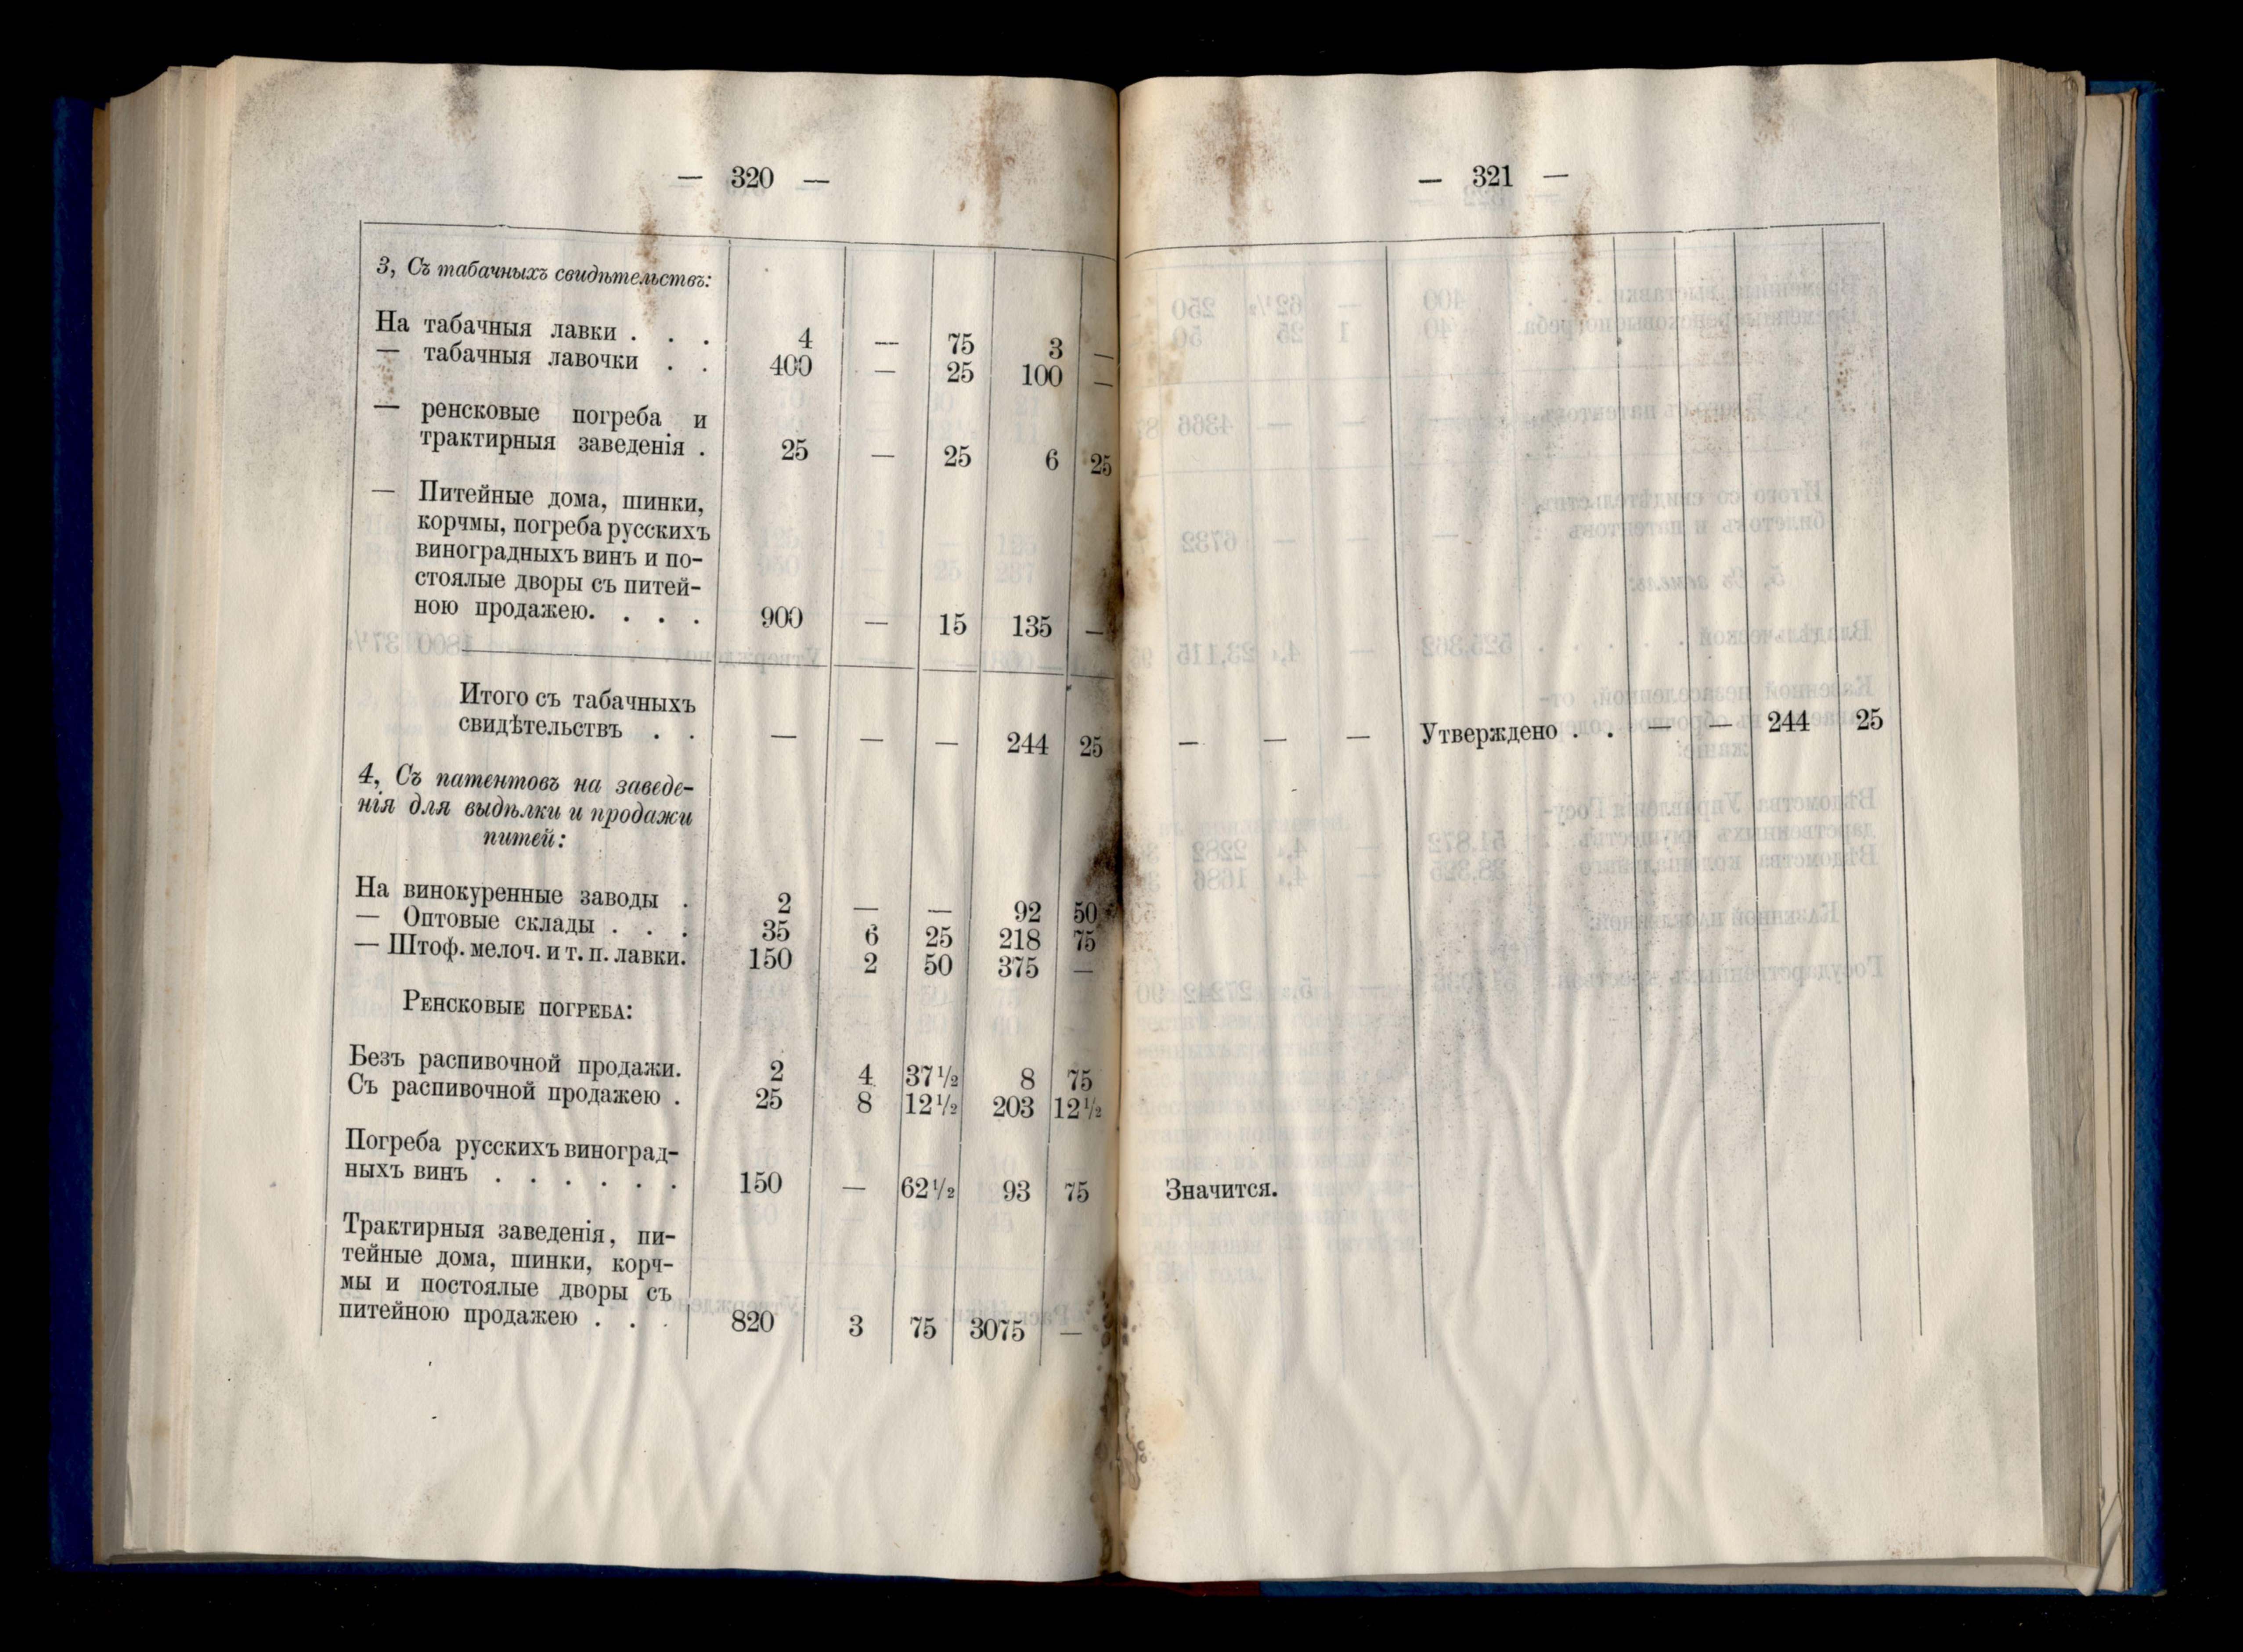 — 320 —
3, Съ табачныхъ свидѣтельствъ:
На табачныя лавки . . . 4 — 75 3 —
— табачныя лавочки . . 400 — 25 100 —
— ренсковые погреба и
трактирныя заведенія . 25 — 25 6 25
— Питейные дома, шинки,
корчмы, погреба русскихъ
виноградныхъ винъ и по-
стоялые дворы съ питей-
ною продажею. . . . 900 — 15 135 —
Итого съ табачныхъ
свидѣтельствъ . . — — — 244 25
4, Съ патентовъ на заведе-
нія для выдѣлки и продажи
питей:
На винокуренные заводы . 2 — — 92 50
— Оптовые склады . . . 35 6 25 218 75
— Штоф. мелоч. и т. п. лавки. 150 2 50 375 —
Ренсковые погреба:
Безъ распивочной продажи. 2 4 37½ 8 75
Съ распивочной продажею . 25 8 12½ 203 12½
Погреба русскихъ виноград-
ныхъ винъ . . . . . . 150 — 62½ 93 75
Трактирныя заведенія, пи-
тейные дома, шинки, корч-
мы и постоялые дворы съ
питейною продажею . . . 820 3 75 3075 —
— 321 —
— — — Утверждено . . — — 244 25
Значится.